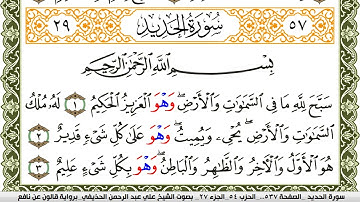 ٢٩ سُورَةُ الحَدِيدِ ٥٧
بِسْمِ اللَّهِ الرَّحْمَٰنِ الرَّحِيمِ
سَبَّحَ لِلَّهِ مَا فِي السَّمَٰوَٰتِ وَالْأَرْضِ وَهْوَ الْعَزِيزُ الْحَكِيمُ ١ لَهُۥ مُلْكُ
السَّمَٰوَٰتِ وَالْأَرْضِ يُحْيِۦ وَيُمِيتُ وَهْوَ عَلَىٰ كُلِّ شَيْءٍ قَدِيرٌ ٢
هُوَ الْأَوَّلُ وَالْأَخِرُ وَالظَّٰهِرُ وَالْبَاطِنُ وَهْوَ بِكُلِّ شَيْءٍ عَلِيمٌ ٣
سورة الحديد ..الصفحة ٥٣٧.. الحزب ٥٤ ..الجزء ٢٧ .. بصوت الشيخ علي عبد الرحمن الحذيفي.. برواية قالون عن نافع